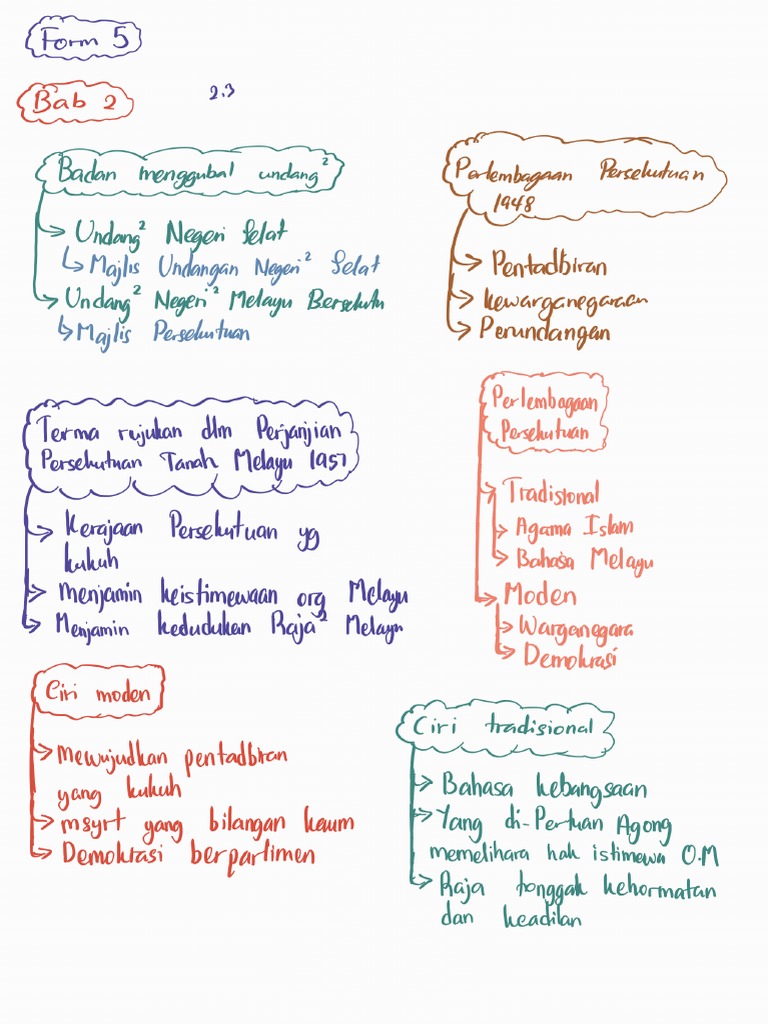 Form 5
Bab 2
2.3
Badan menggubal undang²
→ Undang² Negeri Selat
↳ Majlis Undangan Negeri² Selat
→ Undang² Negeri² Melayu Bersekutu
↳ Majlis Persekutuan
Perlembagaan Persekutuan
1948
→ Pentadbiran
→ kewarganegaraan
→ Perundangan
Terma rujukan dlm Perjanjian
Persekutuan Tanah Melayu 1957
→ Kerajaan Persekutuan yg
kukuh
→ Menjamin keistimewaan org Melayu
→ Menjamin kedudukan Raja² Melayu
Perlembagaan
Persekutuan
→ Tradisional
→ Agama Islam
→ Bahasa Melayu
→ Moden
→ Warganegara
→ Demokrasi
Ciri moden
→ Mewujudkan pentadbiran
yang kukuh
→ msyrt yang bilangan kaum
→ Demokrasi berparlimen
Ciri tradisional
→ Bahasa kebangsaan
→ Yang di-Pertuan Agong
memelihara hak istimewa O.M
→ Raja tonggak kehormatan
dan keadilan